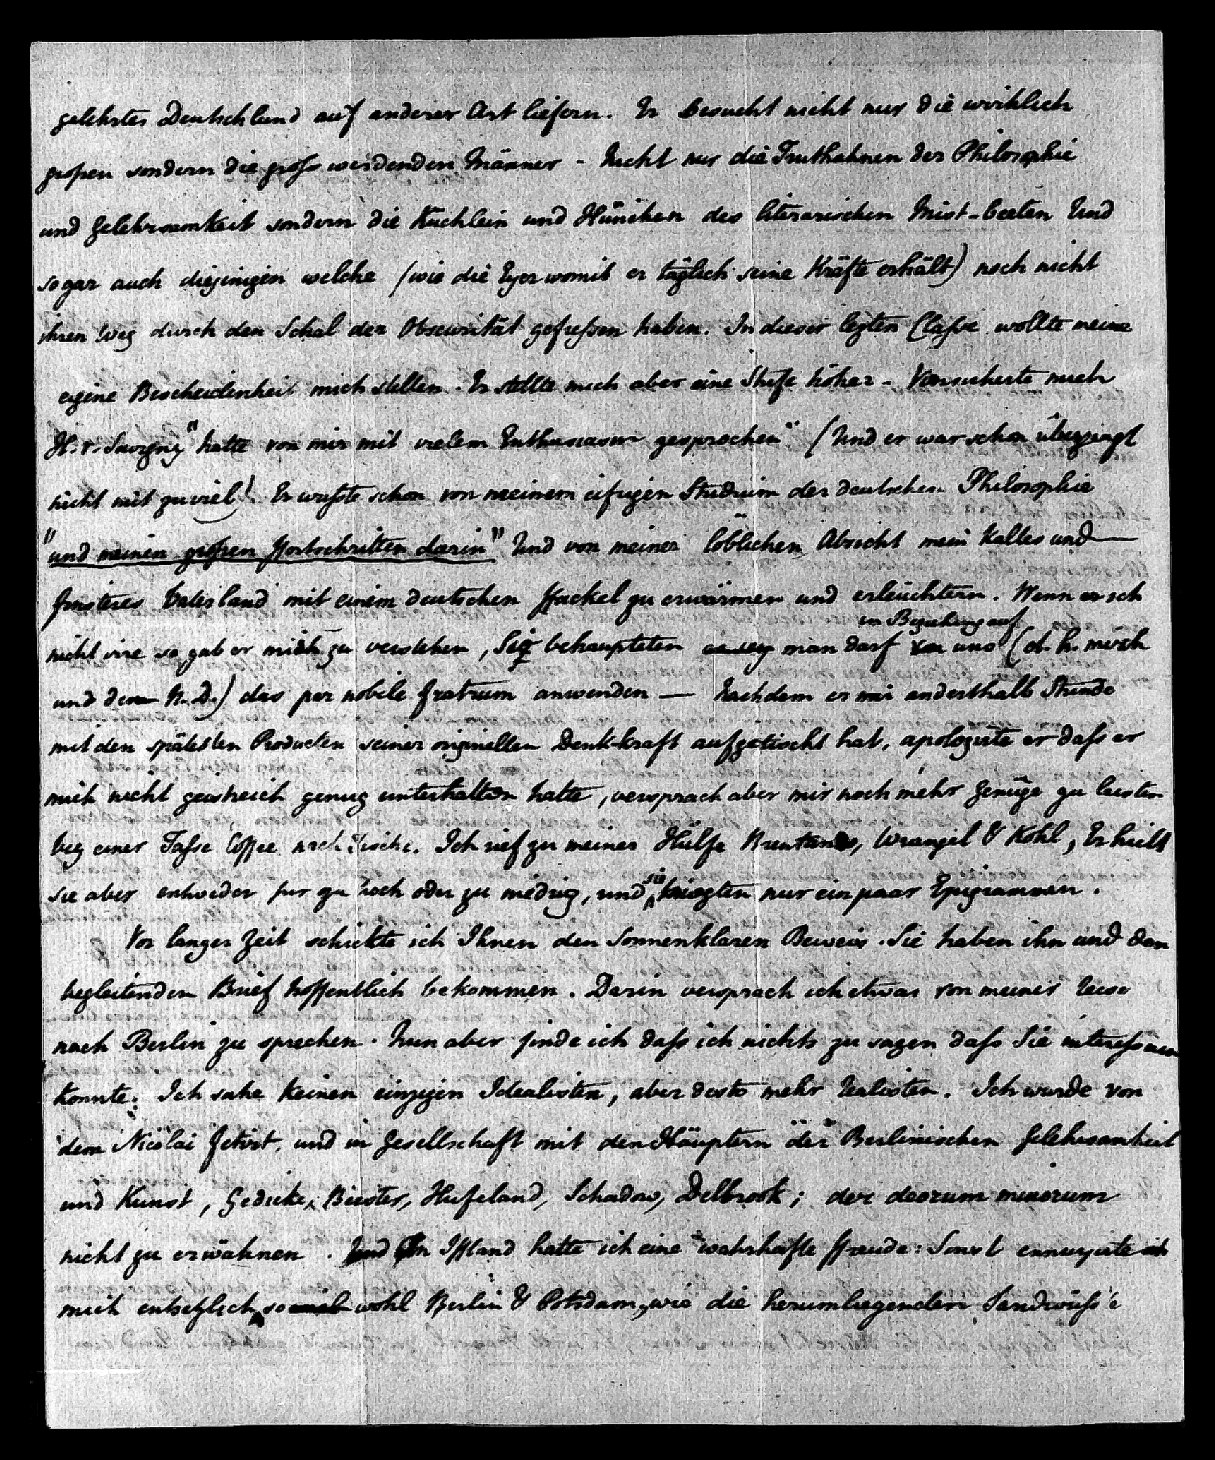 gelehrtes Deutschland auf anderer Art liefern. Er besucht nicht nur die wirklich
großen sondern die groß werdenden Männer - Nicht nur die Truthahnen der Philosophie
und Gelehrsamkeit sondern die Küchlein und Hünchen des literarischen Mist-beeten Und
sogar auch diejenigen welche (wie die Eyer womit er täglich seine Kräfte erhält) noch nicht
ihren Weg durch den Schal der Obscurität gefreßen haben. In dieser lezten Claße wollte meine
eigene Bescheidenheit mich stellen. Er stellte mich aber eine Stufe höher - Versicherte mich
H. v. Savigny "hatte von mir mit vielem Enthusiasm gesprochen" (Und er war schon überzeugt
nicht mit zu viel) Er wußte schon von meinem eifrigen Studium der deutschen Philosophie
"und meinen großen Fortschritten darin" Und von meiner löblichen Absicht mein Kaltes und
finsteres Vaterland mit einem deutschen Fackel zu erwärmen und erleuchtern. Wenn er ich
nicht irre so gab er mich zu verstehen, Sie behaupteten man darf in Beziehung auf uns (d.h. mich
und dem N.D.) das par nobile fratrum anwenden — Nachdem er mir anderthalb Stunde
mit den spätesten Producten seiner originellen Denk-kraft aufgetischt hat, apologirte er daß er
mich nicht geistreich genug unterhalten hatte, versprach aber mir noch mehr Genüge zu leisten
bey einer Taße Coffee nach Tische. Ich rief zu meiner Hülfe Brentano, Wrangel & Kohl, Er hielt
sie aber entweder für zu hoch oder zu niedrig, und sie kriegten nur ein paar Epigrammen.
Vor langer Zeit schickte ich Ihnen den Sonnenklaren Beweis. Sie haben ihn und den
begleitenden Brief hoffentlich bekommen. Darin versprach ich etwas von meiner Reise
nach Berlin zu sprechen. Nun aber finde ich daß ich nichts zu sagen daß Sie interessiren
konnte. Ich sahe Keinen einzigen Idealisten, aber desto mehr Realisten. Ich wurde von
dem Nicolai fetirt, und in Gesellschaft mit den Häuptern der Berlinischen Gelehrsamkeit
und Kunst, Gedicke, Biester, Hufeland, Schadow, Delbrook; der deorum minorum
nicht zu erwähnen. In Iffland hatte ich eine wahrhafte Freude: Sonst ennuyirte ich
mich entsetzlich so wohl Berlin & Potsdam, wie die herumliegenden Sandwüste